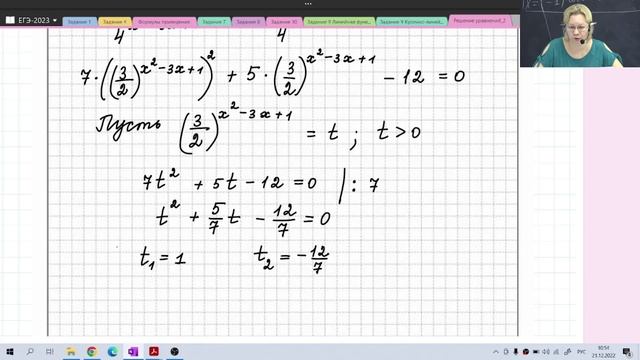 ЕГЭ-2023
Задание 1 Задание 4 Формулы приведения Задание 6 Задание 8 Задание 10 Задание 9 Линейная функ... Задание 9 Кусочно-линей... Решение уравнений_2
4 4
7 · ((3/2)^(x² − 3x + 1))² + 5 · (3/2)^(x² − 3x + 1) − 12 = 0
Пусть (3/2)^(x² − 3x + 1) = t ; t > 0
7t² + 5t − 12 = 0 | : 7
t² + 5/7 t − 12/7 = 0
t₁ = 1 t₂ = −12/7
РУС 10:51
21.12.2022